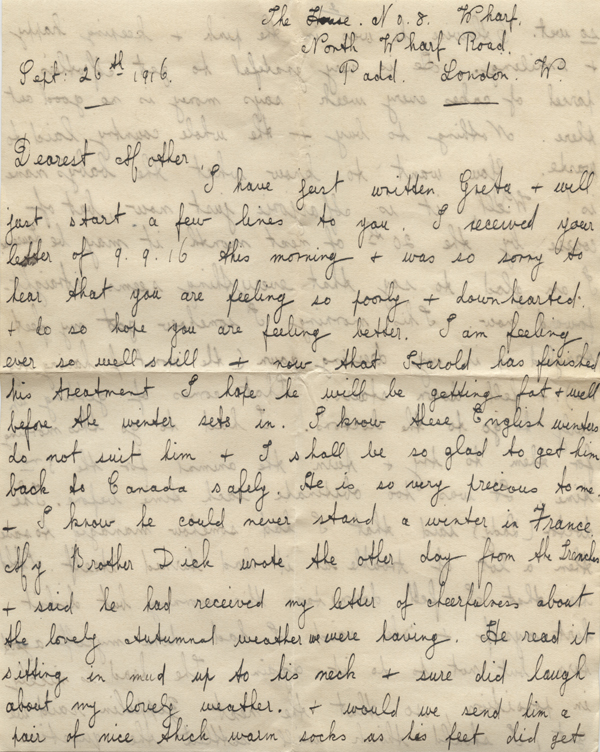 The House. No. 8. Wharf.
North Wharf Road.
Sept: 26th 1916. Padd. London. W.
Dearest Mother,
I have just written Greta + will
just start a few lines to you. I received your
letter of 9.9.16 this morning + was so sorry to
hear that you are feeling so poorly + downhearted.
+ do so hope you are feeling better. I am feeling
ever so well still + now that Harold has finished
his treatment I hope he will be getting fat + well
before the winter sets in. I know these English winters
do not suit him + I shall be so glad to get him
back to Canada safely. He is so very precious to me.
+ I know he could never stand a winter in France
My Brother Dick wrote the other day from the Trenches
+ said he had received my letter of cheerfulness about
the lovely Autumnal weather we were having. He read it
sitting in mud up to his neck + sure did laugh
about my lovely weather. + would we send him a
pair of nice thick warm socks as his feet did get